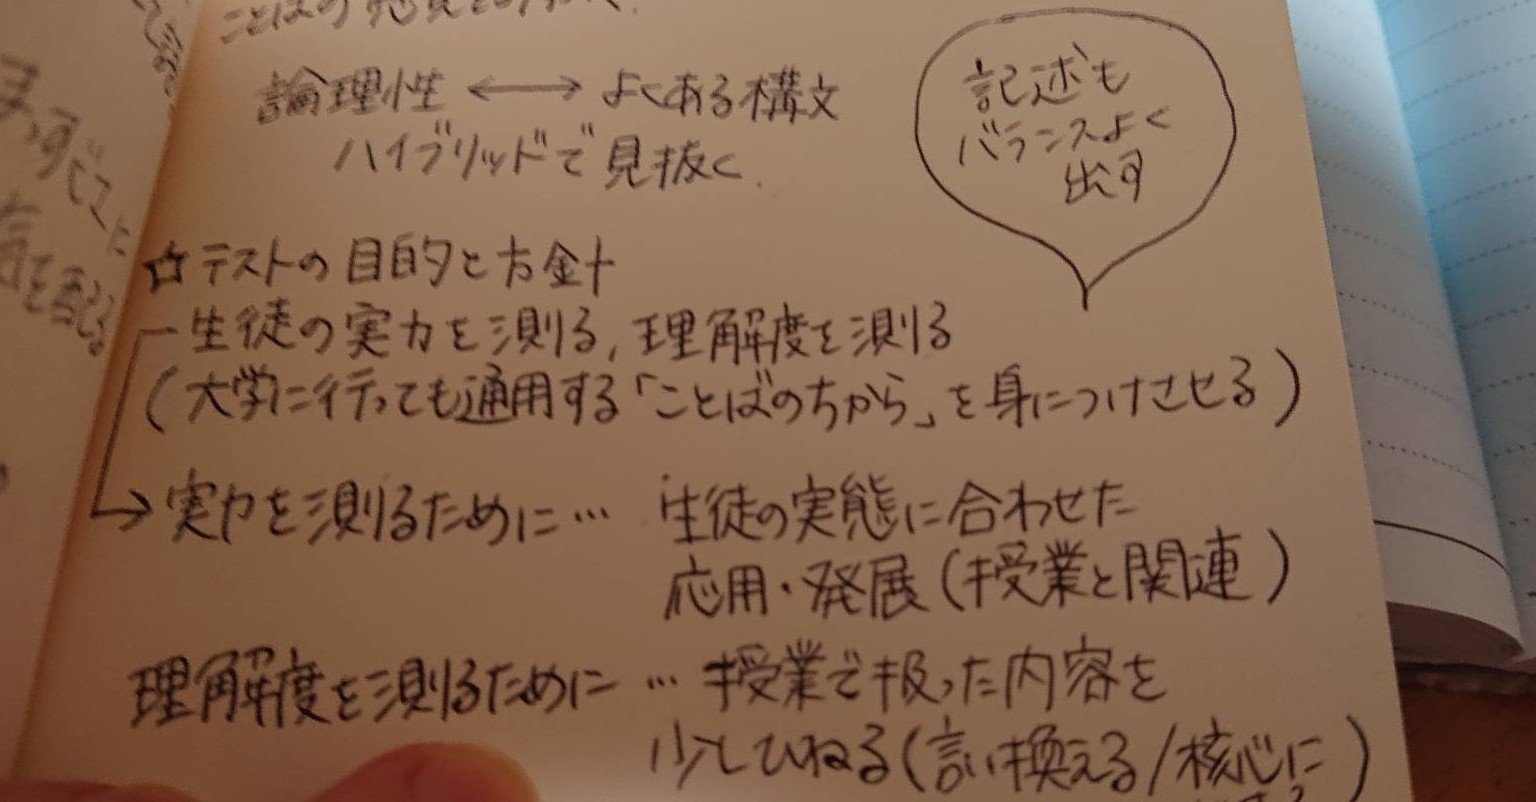 ことばの
論理性 ←→ よくある構文
ハイブリッドで見抜く.
記述も
バランスよく
出す
☆テストの目的と方針
ー生徒の実力を測る, 理解度を測る
(大学に行っても通用する「ことばのちから」を身につけさせる)
→実力を測るために… 生徒の実態に合わせた
応用・発展(授業と関連)
理解度を測るために… 授業で扱った内容を
少しひねる(言い換える/核心に)